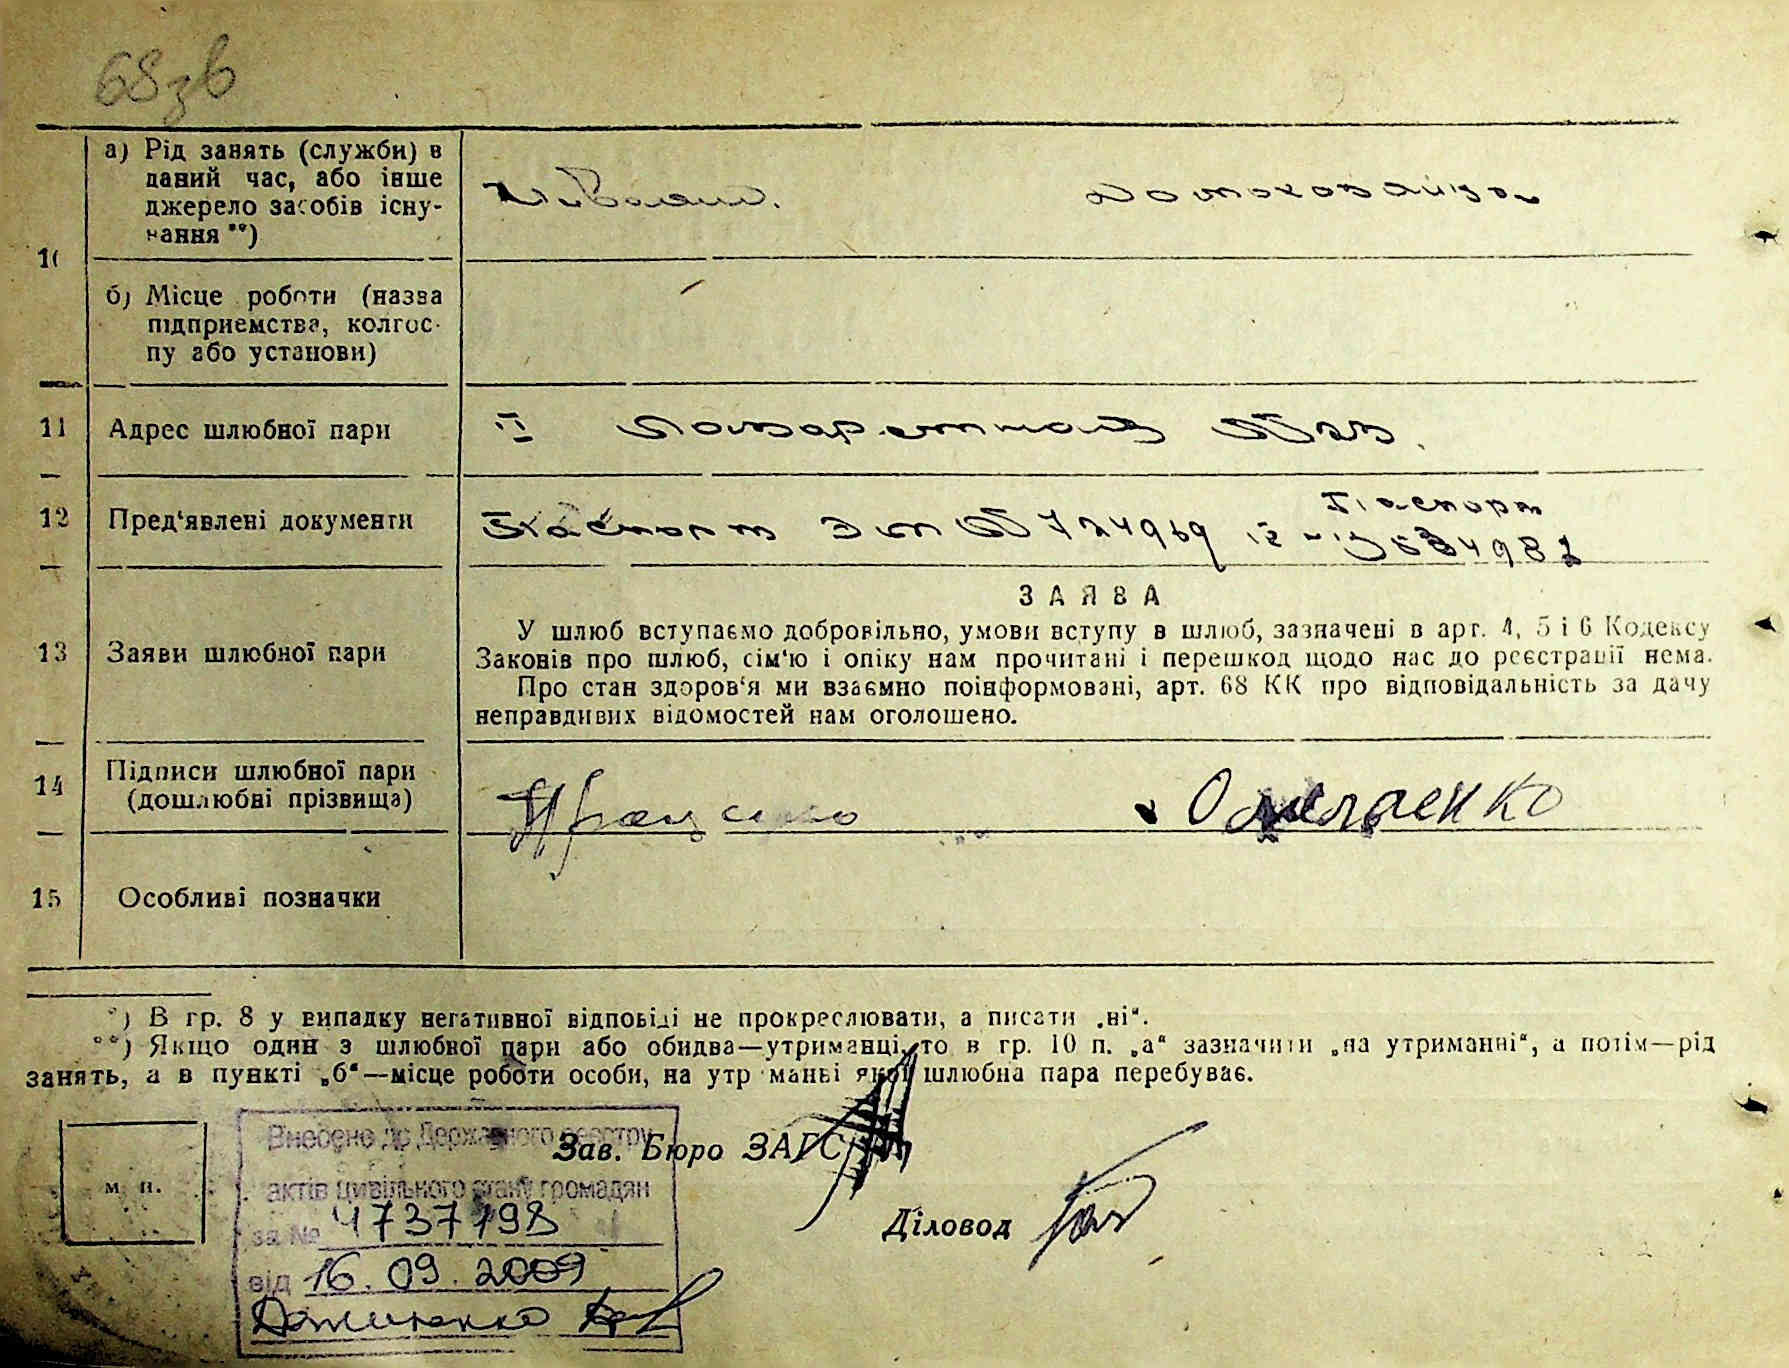 68зв
а) Рід занять (служби) в
даний час, або інше
джерело засобів існу-
вання **)
10
Домохозяйка
б) Місце роботи (назва
підприємства, колгос-
пу або установи)
11 Адрес шлюбної пари
12 Пред‘явлені документи
Паспорт
Паспорт 724969
534982
ЗАЯВА
13 Заяви шлюбної пари
У шлюб вступаємо добровільно, умови вступу в шлюб, зазначені в арт. 4, 5 і 6 Кодексу
Законів про шлюб, сім‘ю і опіку нам прочитані і перешкод щодо нас до реєстрації нема.
Про стан здоров‘я ми взаємно поінформовані, арт. 68 КК про відповідальність за дачу
неправдивих відомостей нам оголошено.
14 Підписи шлюбної пари
(дошлюбні прізвища)
Омельченко
15 Особливі позначки
*) В гр. 8 у випадку негативної відповіді не прокреслювати, а писати „ні“.
**) Якщо один з шлюбної пари або обидва—утриманці, то в гр. 10 п. „а“ зазначити „на утриманні“, а потім—рід
занять, а в пункті „б“—місце роботи особи, на утриманні якої шлюбна пара перебуває.
Внесено до Державного реєстру
Зав. Бюро ЗАГС
м. п.
актів цивільного стану громадян
за № 4737198
Діловод
від 16.09.2009